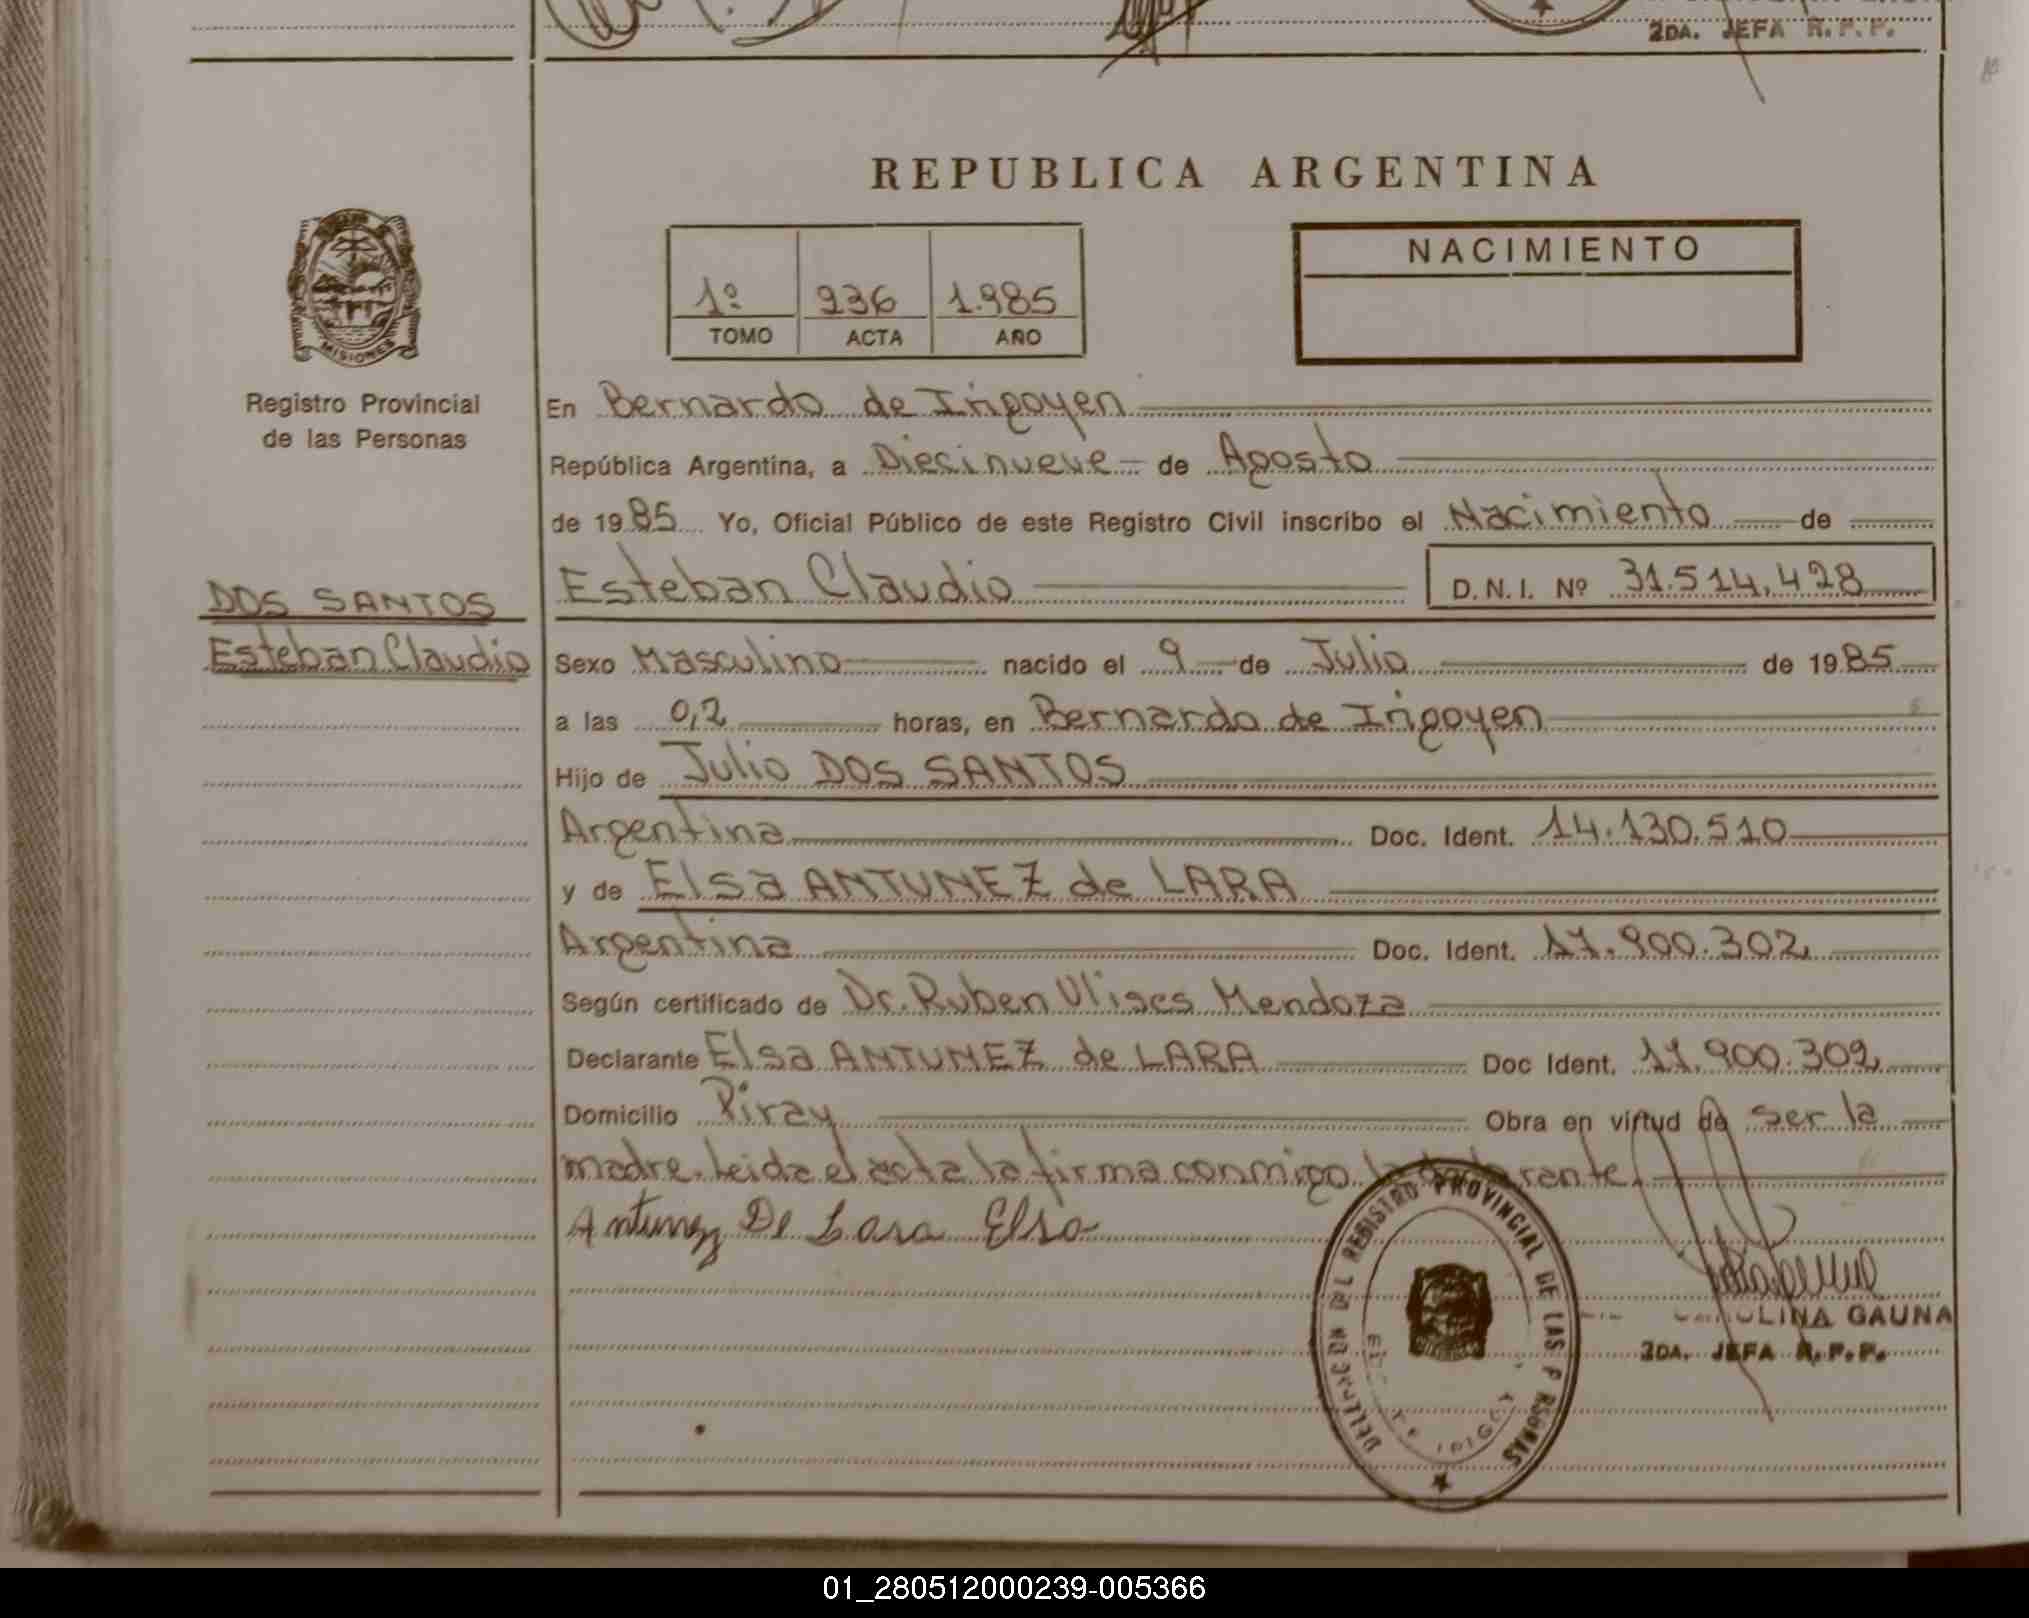 2DA. JEFA R.P.P.
REPUBLICA ARGENTINA
MISIONES
Registro Provincial
de las Personas
1º 236 1.985
TOMO ACTA AÑO
NACIMIENTO
En Bernardo de Irigoyen
República Argentina, a Diecinueve de Agosto
de 1985 Yo, Oficial Público de este Registro Civil inscribo el Nacimiento de
DOS SANTOS
Esteban Claudio
Esteban Claudio D.N.I. Nº 31.514.428
Sexo Masculino nacido el 9 de Julio de 1985
a las 0,2 horas, en Bernardo de Irigoyen
Hijo de Julio DOS SANTOS
Argentina Doc. Ident. 14.130.510
y de Elsa ANTUNEZ de LARA
Argentina Doc. Ident. 17.900.302
Según certificado de Dr. Ruben Ulises Mendoza
Declarante Elsa ANTUNEZ de LARA Doc Ident. 17.900.302
Domicilio Piray Obra en virtud de ser la
madre. Leida el acta la firma conmigo la declarante.
Antunez De Lara Elsa
REGISTRO PROVINCIAL DE LAS
CAROLINA GAUNA
2DA. JEFA R.P.P.
01_280512000239-005366